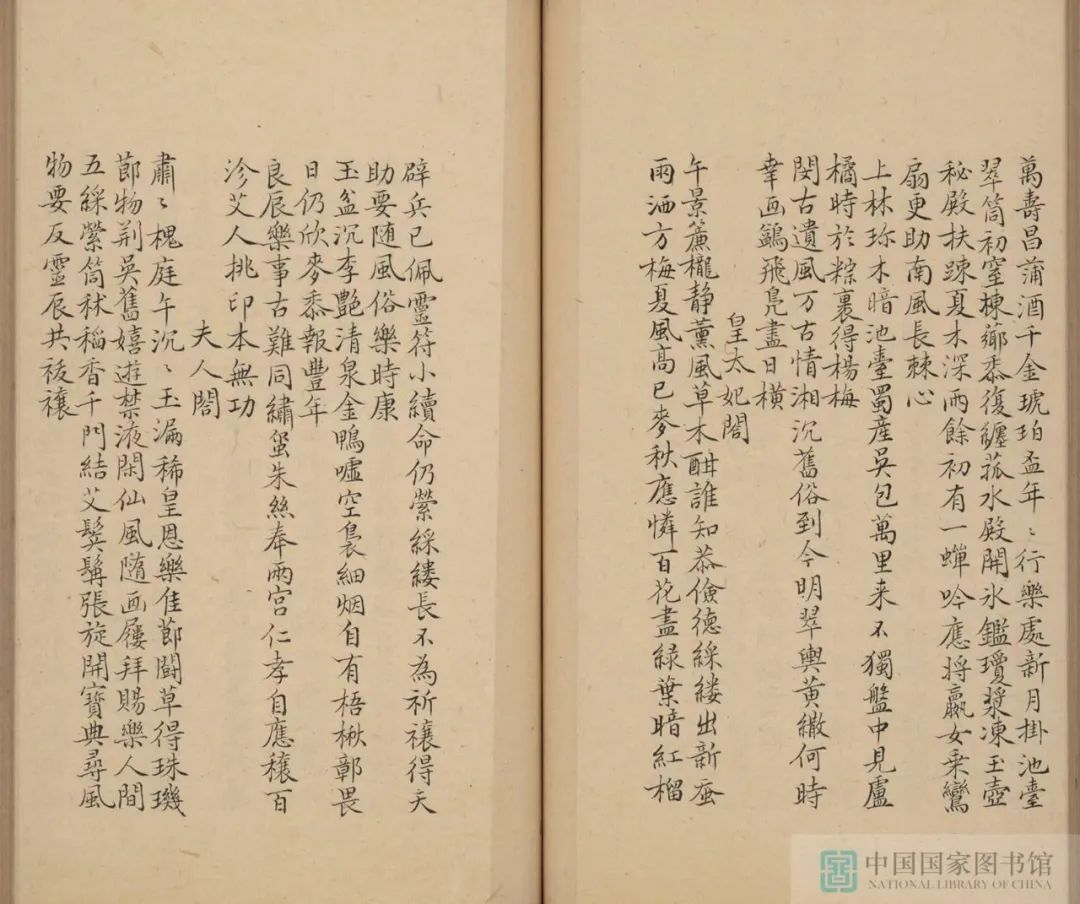 萬壽昌蒲酒千金琥珀盃年〻行樂處新月掛池臺
翠筒初窒楝薌黍復纏菰水殿開氷鑑瓊漿凍玉壺
秘殿扶踈夏木深雨餘初有一蟬吟應將嬴女乗鸞
扇更助南風長棘心
上林珎木暗池臺蜀産吳包萬里来不獨盤中見盧
橘時於粽裏得楊梅
閔古遺風万古情湘沉舊俗到今明翠輿黄繖何時
幸画鷁飛鳬盡日横
皇太妃閤
午景簾櫳静薰風草木酣誰知恭儉徳綵縷出新蚕
雨洒方梅夏風髙已麥秋應憐百花盡緑葉暗紅榴
辟兵已佩靈符小續命仍縈綵縷長不為祈禳得天
助要随風俗樂時康
玉盆沉李艷清泉金鴨噓空裊細烟自有梧楸鄣畏
日仍欣麥黍報豐年
良辰樂事古難同繡蠒朱絲奉兩宫仁孝自應穰百
沴艾人挑印本無功
夫人閤
肅〻槐庭午沉〻玉漏稀皇恩樂佳節闘草得珠璣
節物荆吳舊嬉遊禁液閑仙風隨画屧拜賜樂人間
五綵縈筒秫稻香千門結艾鬂髯張旋開寶典尋風
物要反靈辰共祓禳
中国国家图书馆
NATIONAL LIBRARY OF CHINA